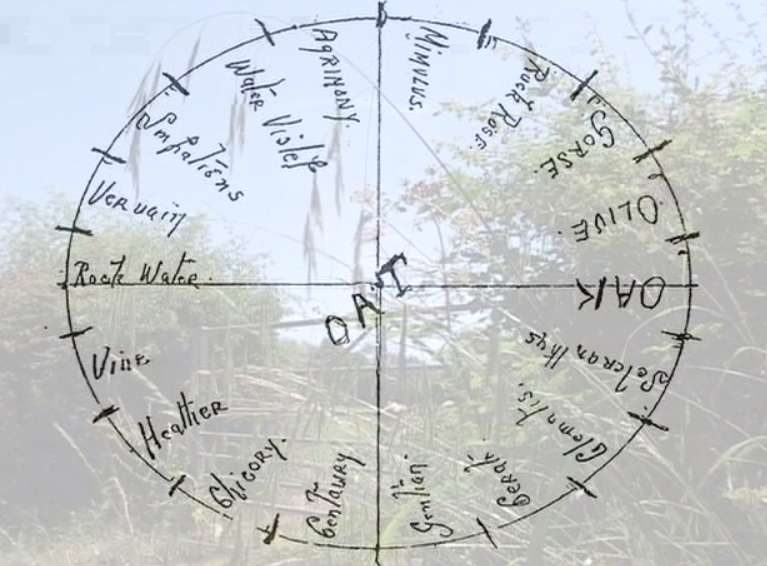 MIMULUS.
Rock Rose.
GORSE.
OLIVE.
OAK
Sclcranthys
Clematis.
Cerato.
Gentian.
Centaury
Chicory.
Heather
Vine
Rock Water.
Vervain
Impatiens
Water Violet
AGRIMONY.
OAT